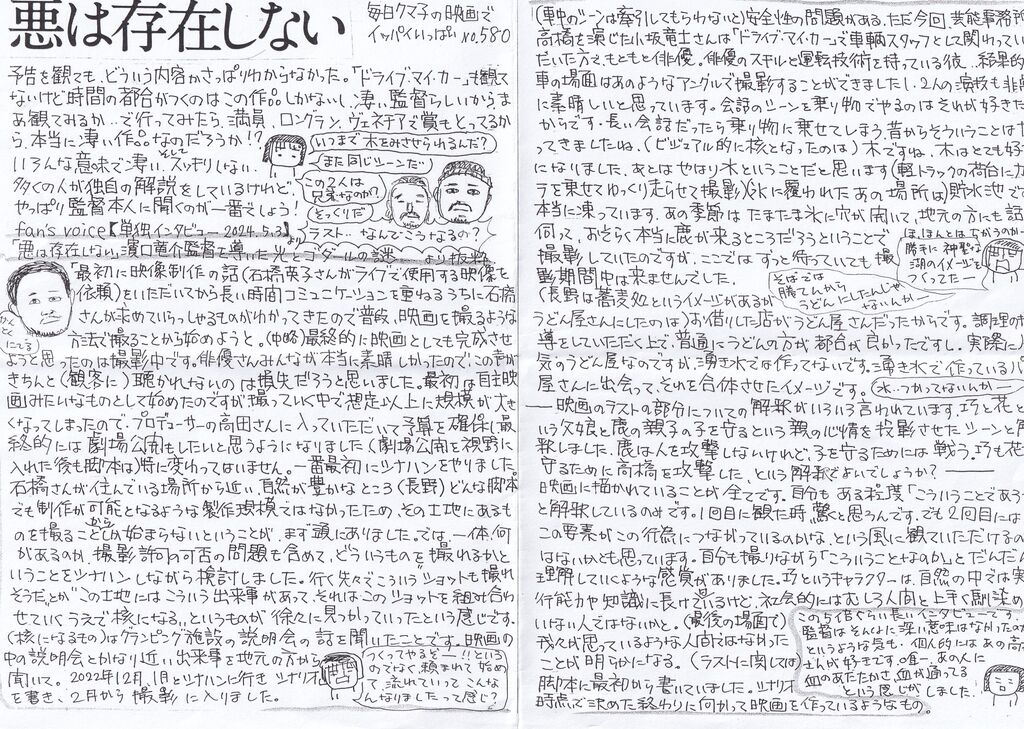 悪は存在しない
毎日クマ子の映画で
イッパイいっぱい No.580
予告を観ても、どういう内容かさっぱりわからなかった。「ドライブ・マイ・カー」も観て
ないけど時間の都合がつくのはこの作品しかないし、凄い監督らしいからま
あ観てみるか…で行ってみたら、満員、ロングラン、ヴェネチアで賞もとってるか
ら、本当に凄い作品なのだろうか!?
いろんな意味で凄いぞ、スッキリしない。
多くの人が独自の解説をしているけれど、
やっぱり監督本人に聞くのが一番でしょう!
fan's voice【単独インタビュー2024.5.3】より
「悪は存在しない」濱口竜介監督を導いた光とゴダールの謎… より抜粋
いつまで木をみさせられるんだ?
また同じシーンだッ
この2人は
兄弟なのか?
そっくりだ
ラスト…なんでこうなるの?
「最初に映像制作の話(石橋英子さんがライブで使用する映像を
依頼)をいただいてから長い時間コミュニケーションを重ねるうちに石橋
さんが求めていらっしゃるものがわかってきたので普段、映画を撮るような
方法で撮ることから始めようと。(中略)最終的に映画としても完成させ
にてる
ようと思ったのは撮影中です。俳優さんみんなが本当に素晴しかったので、この声が
きちんと(観客に)聴かれないのは損失だろうと思いました。最初は自主映
画みたいなものとして始めたのですが撮っていく中で想定以上に規模が大き
くなってしまったので、プロデューサーの高田さんに入っていただいて予算を確保し最
終的には劇場公開もしたいと思うようになりました(劇場公開を視野に
入れた後も脚本は)特に変わってはいません。一番最初にシナハンをやりました。
石橋さんが住んでいる場所から近い、自然が豊かなところ(長野)どんな脚本
でも制作が可能となるような製作環境ではなかったため、その土地にあるも
のを撮ることからしか始まらないということが、まず頭にありました。では、一体何
があるのか、撮影許可の可否の問題も含めて、どういうものを撮れるかと
いうことをシナハンしながら検討しました。行く先々で「こういうショットも撮れ
そうだ」とか「この土地にはこういう出来事があって、それはこのショットを組み合わ
せていくうえで核になる」、というものが徐々に見つかっていったという感じです。
(核になるもの)はグランピング施設の説明会の話を聞いたことです。映画の
中の説明会とかなり近い出来事を地元の方から
聞いて。2022年12月、1月とシナハンに行きシナリオ
を書き、2月から撮影に入りました。
つくってやるぞー!!という
のでなく、頼まれて始め
て、流れていってこんな
んなりましたって感じ?
(車中のシーンは牽引してもらわないと)安全性の問題がある。ただ今回芸能事務所
高橋を演じた小坂竜士さんは「ドライブ・マイ・カー」で車輌スタッフとして関わってい
だいた方で、もともと俳優。俳優のスキルと運転技術を持っている彼、結果的
車の場面はあのようなアングルで撮影することができましたし、2人の演技も非
に素晴しいと思っています。会話のシーンを乗り物でやるのはそれが好きだ
からです。長い会話だったら乗り物に乗せてしまう、昔からそういうことは
ってきましたね。(ビジュアル的に核となったのは)木ですね。木はとても好
になりました。あとはやはり水ということだと思います(軽トラックの荷台にカ
ラを乗せてゆっくり走らせて撮影)(氷に覆われたあの場所は)貯水池で
本当に凍っています。あの季節はたまたま氷に穴が開いて、地元の方にも話
伺って、おそらく本当に鹿が来るところだろうということで
撮影していたのですが、ここではずっと待っていても撮
影期間中は来ませんでした。
ほ、ほんとはちがうのかー
勝手に神聖な
湖のイメージを
もってたー
そばでは
勝てんから
うどんにしたんじゃ
ないんかー
(長野は蕎麦処というイメージがあるが
うどん屋さんにしたのは)お借りした店がうどん屋さんだったからです。調理の
導をしていただく上で、普通にうどんの方が都合が良かったですし。実際に
気のうどん屋なのですが、湧き水では作ってないんです。湧き水で作っているパ
屋さんに出会って、それを合体させたイメージです。
水、つかってないんかー
— 映画のラストの部分についての解釈がいろいろ言われています。巧と花と
いう父娘と、鹿の親子の子を守るという親の心情を投影させたシーンと解
釈しました。鹿は人を攻撃しないけれど、子を守るためには戦う。巧も花を
守るために高橋を攻撃した、という解釈でよいでしょうか? —
映画に描かれていることが全てです。自分もある程度「こういうことであろう
と解釈しているのみです。1回目に観た時驚くと思うんです。でも2回目には
この要素がこの行為につながっているのかな、という風に観ていただけるの
はないかとも思っています。自分も撮りながら「こういうことなのか」とだんだん
理解していくような感覚がありました。巧というキャラクターは、自然の中では実
行能力や知識に長けているけど、社会的にはむしろ人間と上手く馴染め
いない人ではないかと。(最後の場面で)
我々が思っているような人間ではなかった
ことが明らかになる。(ラストに関しては)
脚本に最初から書いていました。シナリオ
時点で決めた終わりに向かって映画を作っているようなもの。
この5倍ぐらい長いインタビューです。
監督はそんなに深い意味はなかったの
というような気も。個人的にはあの高
さんが好きです。唯一、あの人に
血のあたたかさ、血が通ってる
という感じがしました。